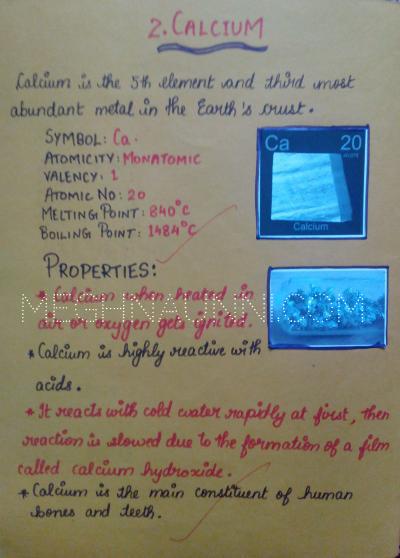 2. CALCIUM
Calcium is the 5th element and third most
abundant metal in the Earth's crust.
SYMBOL: Ca.
ATOMICITY: MONATOMIC
VALENCY: 1
ATOMIC NO: 20
MELTING POINT: 840°C
BOILING POINT: 1484°C
Ca 20
Calcium
PROPERTIES:
* Calcium when heated in
air or oxygen gets ignited.
MEGHNAUNNI.COM
* Calcium is highly reactive with
acids.
* It reacts with cold water rapidly at first, then
reaction is slowed due to the formation of a film
called calcium hydroxide.
* Calcium is the main constituent of human
bones and teeth.